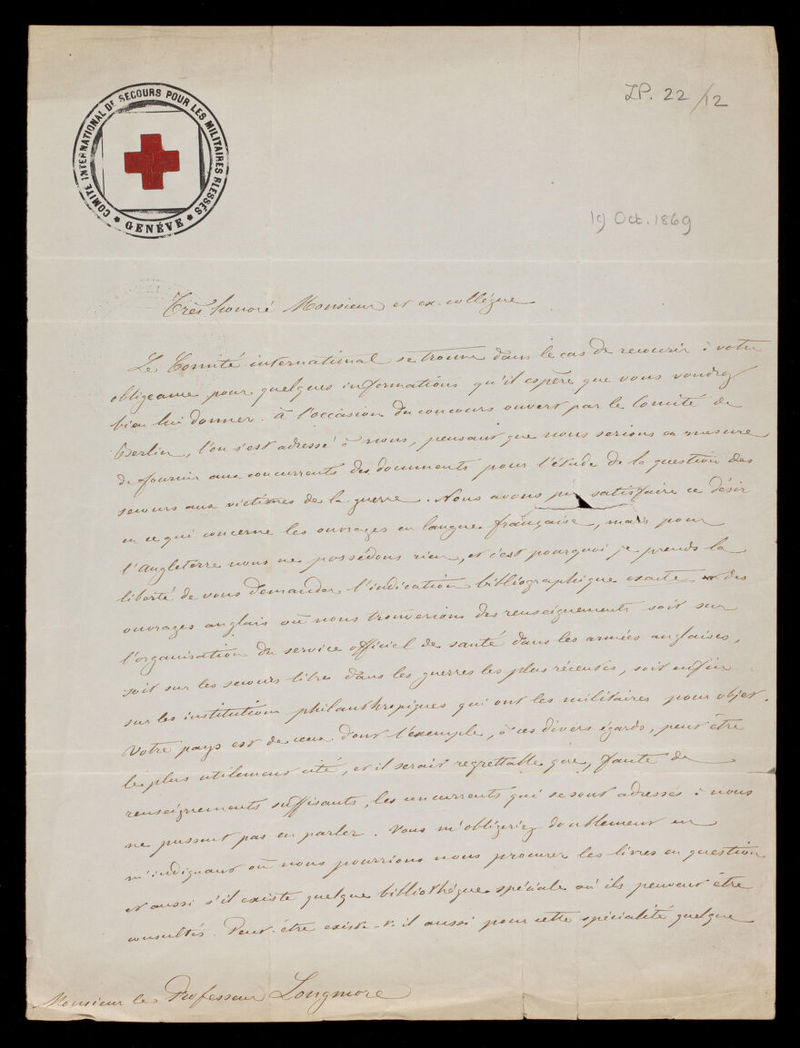 COMITÉ INTERNATIONAL DE SECOURS POUR LES MILITAIRES BLESSÉS
* GENÈVE *
LP. 22/12
19 Oct. 1869
Très honoré Monsieur et ex-collègue
Le Comité international se trouve dans le cas de recourir à votre
obligeance pour quelques informations qu'il espère que vous voudrez
bien lui donner. À l'occasion du concours ouvert par le Comité de
Berlin, l'on s'est adressé à nous, pensant que nous serions en mesure
de fournir aux concurrents des documents pour l'étude de la question des
secours aux victimes de la guerre. Nous avons pu satisfaire ce désir
en ce qui concerne les ouvrages en langue française, mais pour
l'Angleterre nous ne possédons rien, et c'est pourquoi je prends la
liberté de vous demander l'indication bibliographique exacte des
ouvrages anglais où nous trouverions des renseignements soit sur
l'organisation du service officiel de santé dans les armées anglaises,
soit sur les secours libres dans les guerres les plus récentes, soit enfin
sur les institutions philanthropiques qui ont les militaires pour objet.
Votre pays est de ceux dont l'exemple, à ces divers égards, peut être
le plus utilement cité, et il serait regrettable que, faute de
renseignements suffisants, les concurrents qui se sont adressés à nous
ne pussent pas en parler. Vous m'obligeriez doublement en
m'indiquant où nous pourrions nous procurer les livres en question
et aussi s'il existe quelque bibliothèque spéciale où ils peuvent être
consultés. Peut-être existe-t-il aussi pour cette spécialité quelque
Monsieur le Professeur Longmore